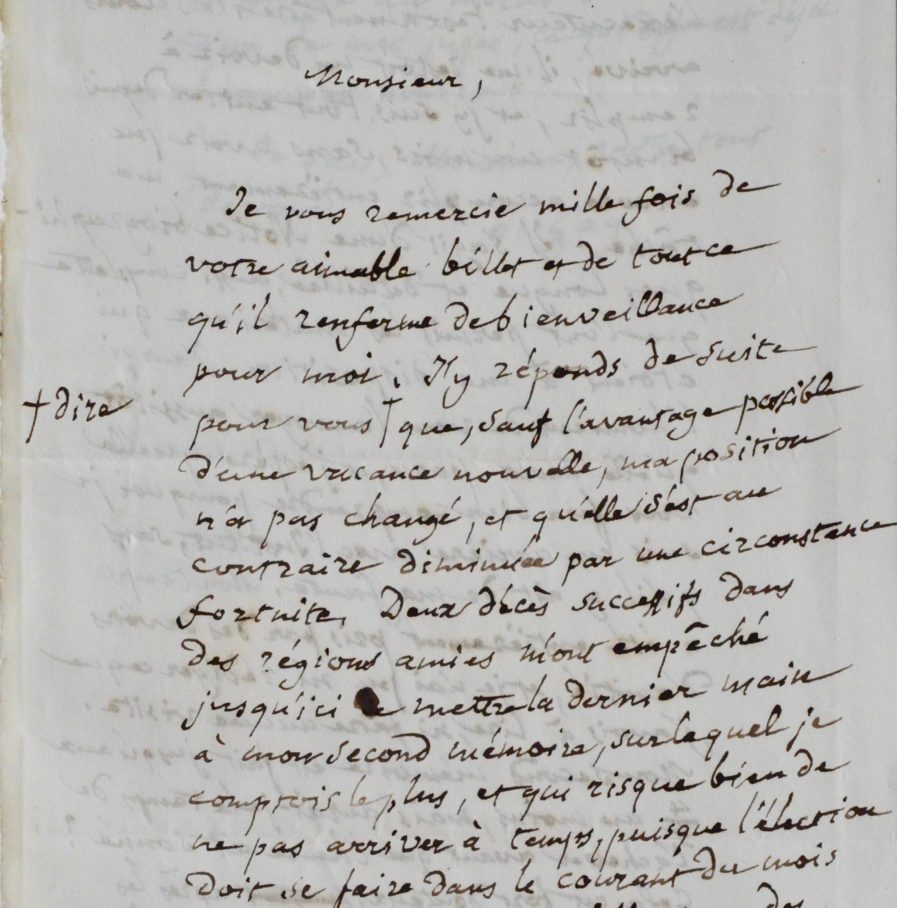 Monsieur,
Je vous remercie mille fois de
votre aimable billet et de tout ce
qu'il renferme de bienveillance
pour moi. J'y réponds de suite
† dire
pour vous † que, sauf l'avantage possible
d'une vacance nouvelle, ma position
n'a pas changé, et qu'elle s'est au
contraire diminuée par une circonstance
fortuite. Deux décès successifs dans
des régions amies m'ont empêché
jusqu'ici de mettre la dernier main
à mon second mémoire, sur lequel je
comptois le plus, et qui risque bien de
ne pas arriver à temps, puisque l'élection
doit se faire dans le courant du mois
des